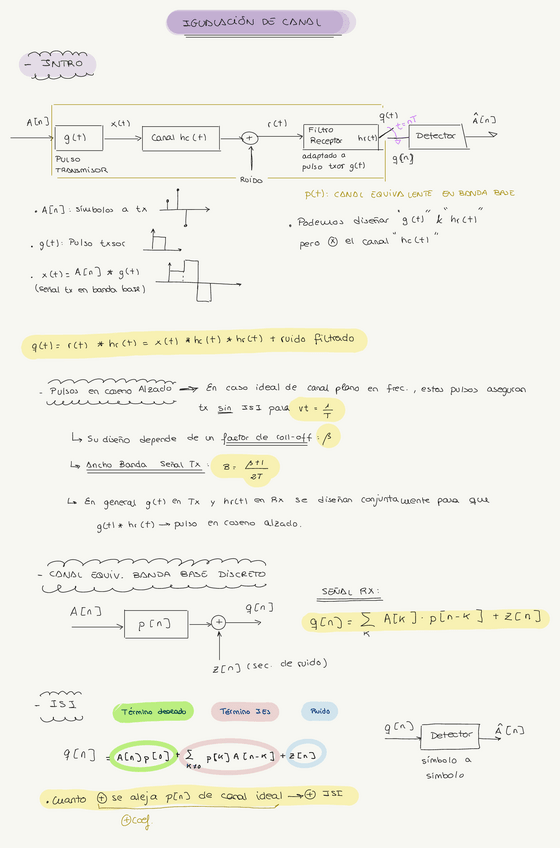 IGUALACIÓN DE CANAL
- INTRO
A[n]
g(t)
x(t)
Canal hc(t)
+
r(t)
Filtro
Receptor hr(t)
q(t)
t=nT
q[n]
Detector
Â[n]
PULSO
TRANSMISOR
RUIDO
adaptado a
pulso txor g(t)
p(t): CANAL EQUIVALENTE EN BANDA BASE
• A[n]: símbolos a tx
• g(t): Pulso txsor
• x(t) = A[n] * g(t)
(señal tx en banda base)
• Podemos diseñar "g(t)" & "hr(t)"
pero ⊗ el canal "hc(t)"
q(t) = r(t) * hr(t) = x(t) * hc(t) * hr(t) + ruido filtrado
- Pulsos en coseno Alzado → En caso ideal de canal plano en frec., estos pulsos aseguran
tx sin ISI para vt = 1/T
↳ Su diseño depende de un factor de roll-off: β
↳ Ancho Banda Señal Tx: B = β+1 / 2T
↳ En general g(t) en Tx y hr(t) en Rx se diseñan conjuntamente para que
g(t) * hr(t) → pulso en coseno alzado.
- CANAL EQUIV. BANDA BASE DISCRETO
A[n]
p[n]
+
q[n]
z[n] (sec. de ruido)
SEÑAL RX:
q[n] = Σ A[k] · p[n-k] + z[n]
k
- ISI
Término deseado
Término IES
Ruido
q[n] = A[n] p[0] + Σ p[k] A[n-k] + z[n]
k≠0
q[n]
Detector
Â[n]
símbolo a
símbolo
• Cuanto ⊕ se aleja p[n] de canal ideal → ⊕ ISI
⊕ coef.